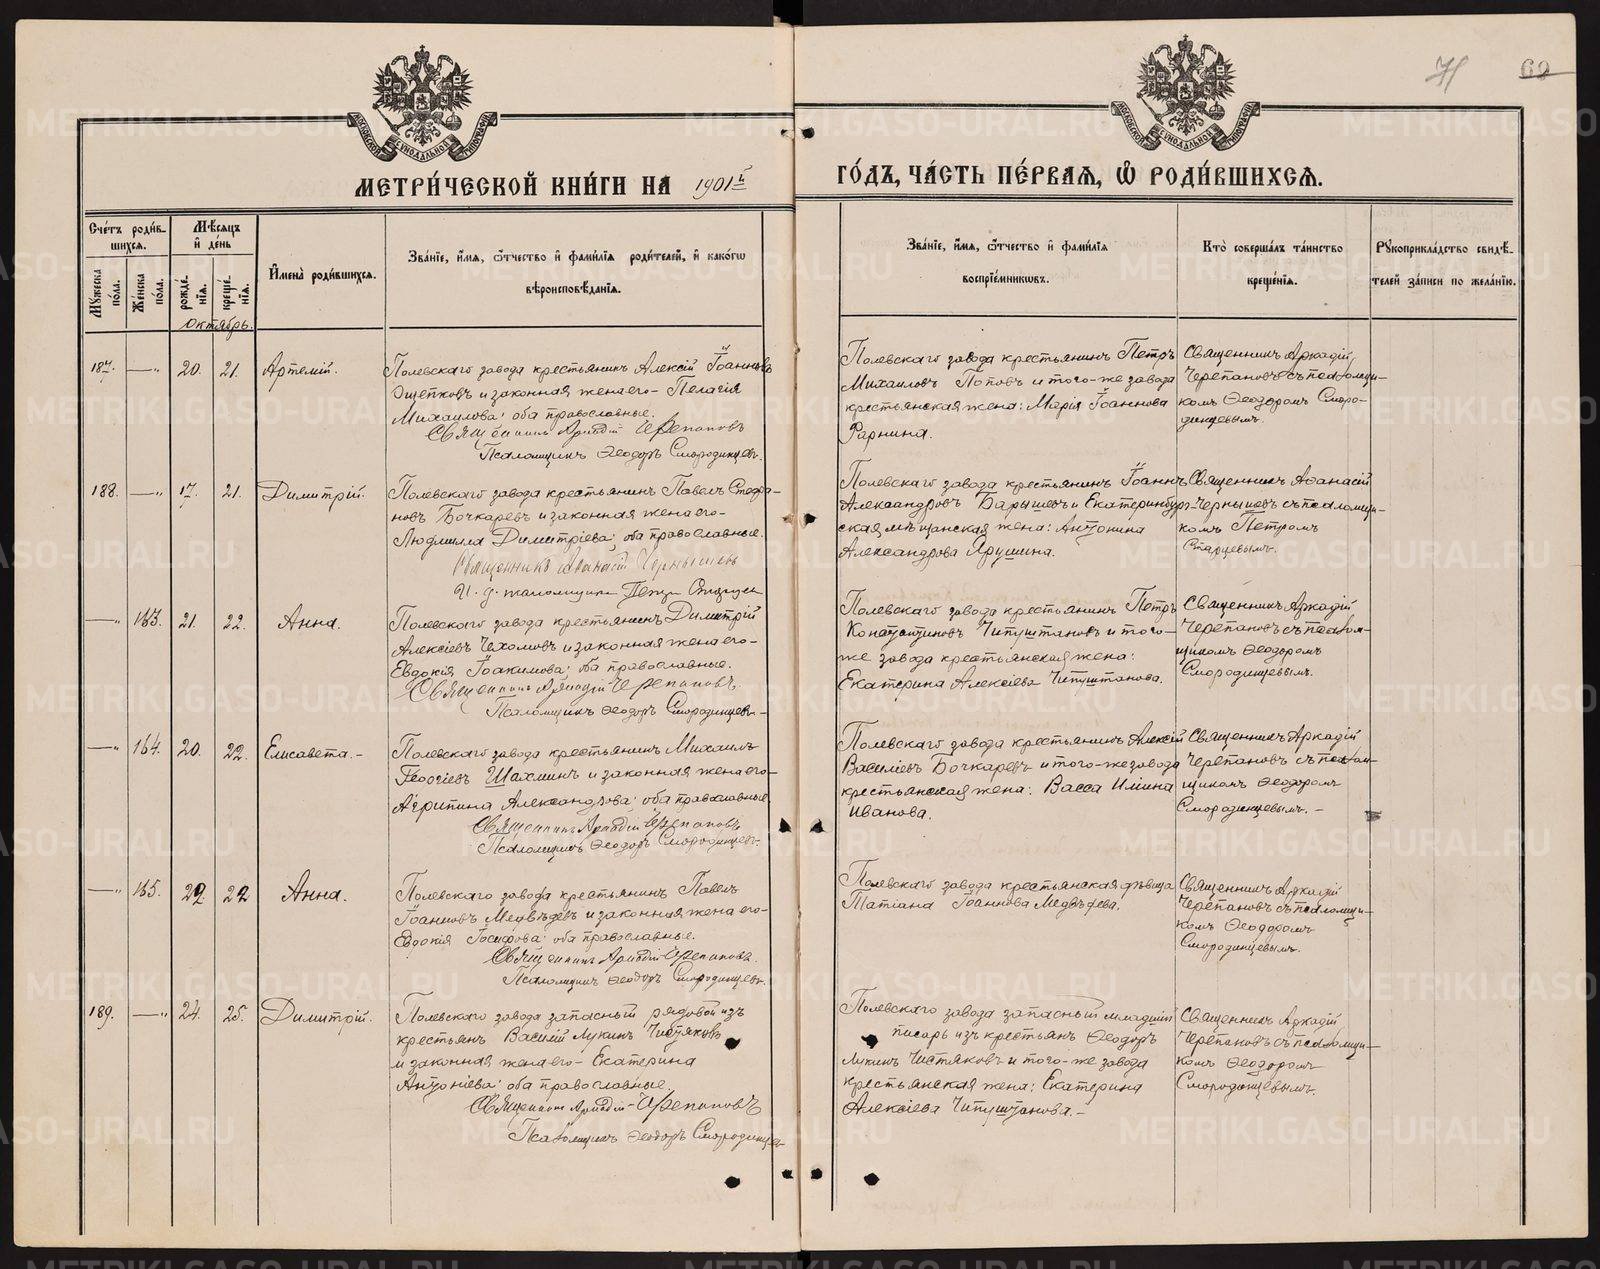 71 69
МЕТРИ́ЧЕСКОЙ КНИ́ГИ НА 1901й ГО́ДЪ, ЧА́СТЬ ПЕ́РВАЯ, Ѡ РОДИ́ВШИХСЯ.
Сче́тъ роди́вшихся.
Мꙋжеска по́ла.
Же́нска по́ла.
Мѣ́сяцъ и де́нь
рожде́нїѧ.
креще́нїѧ.
И҆мена̀ роди́вшихсѧ.
Зва́нїе, и҆́мѧ, ѻ҆́тчество и҆ фами́лїѧ роди́телей, и҆ како́гѡ
вѣроисповѣ́данїѧ.
Зва́нїе, и҆́мѧ, ѻ҆́тчество и҆ фами́лїѧ
воспрїе́мникѡвъ.
Кто̀ соверша́лъ та́инство
креще́нїѧ.
Рꙋкоприкла́дство свидѣ́-
телей за́писи по жела́нїю.
Октябрь.
187. —„ 20. 21. Артемій.
Полевскаго завода крестьянинъ Алексій Іоанновъ
Ощепковъ и законная жена его- Пелагія
Михаилова; оба православные.
Священникъ Аркадій Черепановъ
Псаломщикъ Ѳеодоръ Смородинцевъ.
Полевскаго завода крестьянинъ Петръ
Михаиловъ Поповъ и того-же завода
крестьянская жена: Марія Іоаннова
Священникъ Аркадій
Черепановъ съ псаломщи-
комъ Ѳеодоромъ Сморо-
динцевымъ.
188. —„ 17. 21. Димитрій.
Полевскаго завода крестьянинъ Павелъ Стефа-
новъ Бочкаревъ и законная жена его-
Людмилла Димитріева; оба православные.
Священникъ Аѳанасій Чернышевъ
И. д. псаломщика Петръ Старцевъ
Полевскаго завода крестьянинъ Іоаннъ
Александровъ Барышевъ и Екатеринбург-
ская мѣщанская жена: Антонина
Александрова Ярушина.
Священникъ Аѳанасій
Чернышевъ съ псаломщи-
комъ Петромъ
Старцевымъ.
—„ 163. 21. 22. Анна.
Полевскаго завода крестьянинъ Димитрій
Алексіевъ Чехомовъ и законная жена его-
Евдокія Іоакимова; оба православные.
Священникъ Аркадій Черепановъ.
Псаломщикъ Ѳеодоръ Смородинцевъ-
Полевскаго завода крестьянинъ Петръ
Чипуштановъ и того-
же завода крестьянская жена:
Екатерина Алексіева Чипуштанова.
Священникъ Аркадій
Черепановъ съ псалом-
щикомъ Ѳеодоромъ
Смородинцевымъ.
—„ 164. 20. 22. Елисавета.-
Полевскаго завода крестьянинъ Михаилъ
Георгіевъ Шахминъ и законная жена его-
Агрипина Александрова; оба православные.
Священникъ Аркадій Черепановъ
Псаломщикъ Ѳеодоръ Смородинцевъ.
Полевскаго завода крестьянинъ Алексій
Василіевъ Бочкаревъ и того-же завода
крестьянская жена: Васса Иліина
Иванова.
Священникъ Аркадій
Черепановъ съ псалом-
щикомъ Ѳеодоромъ
Смородинцевымъ.-
—„ 165. 22. 22 Анна.
Полевскаго завода крестьянинъ Павелъ
Іоанновъ Медвѣдевъ и законная жена его-
Евдокія Іосифова; оба православные.
Священникъ Аркадій Черепановъ.
Псаломщикъ Ѳеодоръ Смородинцевъ.
Полевскаго завода крестьянская дѣвица
Татіана Іоаннова Медвѣдева.
Священникъ Аркадій
Черепановъ съ псаломщи-
комъ Ѳеодоромъ
Смородинцевымъ.
189. —„ 24. 25. Димитрій.
Полевскаго завода запасный рядовой изъ
крестьянъ Василій Лукинъ Чистяковъ
и законная жена его- Екатерина
Антоніева; оба православные.
Священникъ Аркадій Черепановъ
Псаломщикъ Ѳеодоръ Смородинцевъ
Полевскаго завода запасный младшій
писарь изъ крестьянъ Ѳеодоръ
Лукинъ Чистяковъ и того-же завода
крестьянская жена: Екатерина
Алексіева Чипуштанова.-
Священникъ Аркадій
Черепановъ съ псаломщи-
комъ Ѳеодоромъ
Смородинцевымъ.